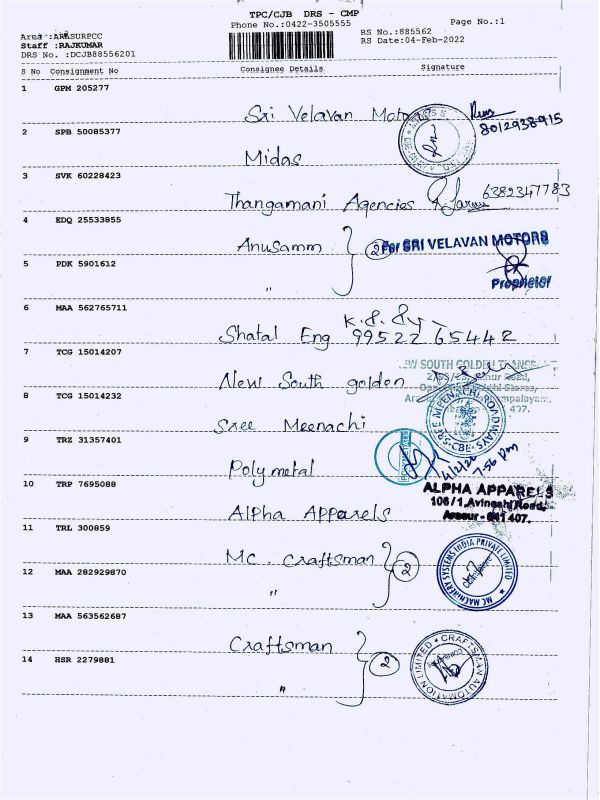 TPC/CJB DRS - CMP
Phone No.:0422-3505555
Page No.:1
Area :ARASURPCC
Staff :RAJKUMAR
DRS No. :DCJB88556201
RS No.:885562
RS Date:04-Feb-2022
S No Consignment No Consignee Details Signature
1 GPM 205277
Sri Velavan Motors
8012938915
2 SPB 50085377
Midas
3 SVK 60228423
Thangamani Agencies 6382347783
4 EDQ 25533855
Anusamm 2 For SRI VELAVAN MOTORS
5 PDK 5901612
" Proprietor
6 MAA 562765711
Shatal Eng 99522 65442
7 TCG 15014207
SOUTH GOLDEN
New South golden
8 TCG 15014232
SREE MEENACHI ROADWAYS CBE
Sree Meenachi
9 TRZ 31357401
Polymetal
4/2/20 7-56 Pm
10 TRP 7695088
ALPHA APPARELS
106/1,Avinashi Road,
Arasur - 641 407.
Alpha Apparels
11 TRL 300859
Mc. Craftsman 2
MC MACHINERY SYSTEMS INDIA PRIVATE LIMITED
12 MAA 282929870
"
13 MAA 563562687
Craftsman 2
CRAFTSMAN AUTOMATION LIMITED
14 HSR 2279881
"